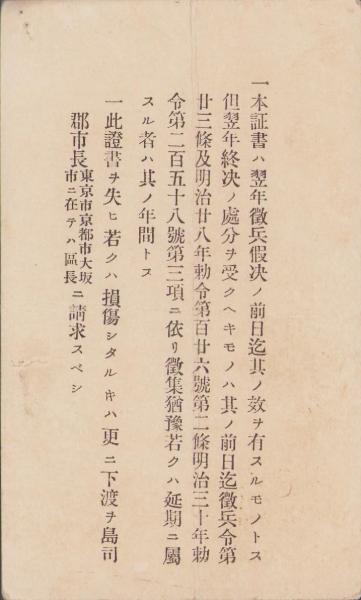 一本証書ハ翌年徴兵假决ノ前日迄其ノ效ヲ有スルモノトス
但翌年終决ノ處分ヲ受クヘキモノハ其ノ前日迄徴兵令第
廿三條及明治廿八年勅令第百廿六號第二條明治三十年勅
令第二百五十八號第三項ニ依リ徴集猶豫若クハ延期ニ屬
スル者ハ其ノ年間トス
一此證書ヲ失ヒ若クハ損傷シタルキハ更ニ下渡ヲ島司
郡市長東京市京都市大坂市ニ在テハ區長ニ請求スベシ